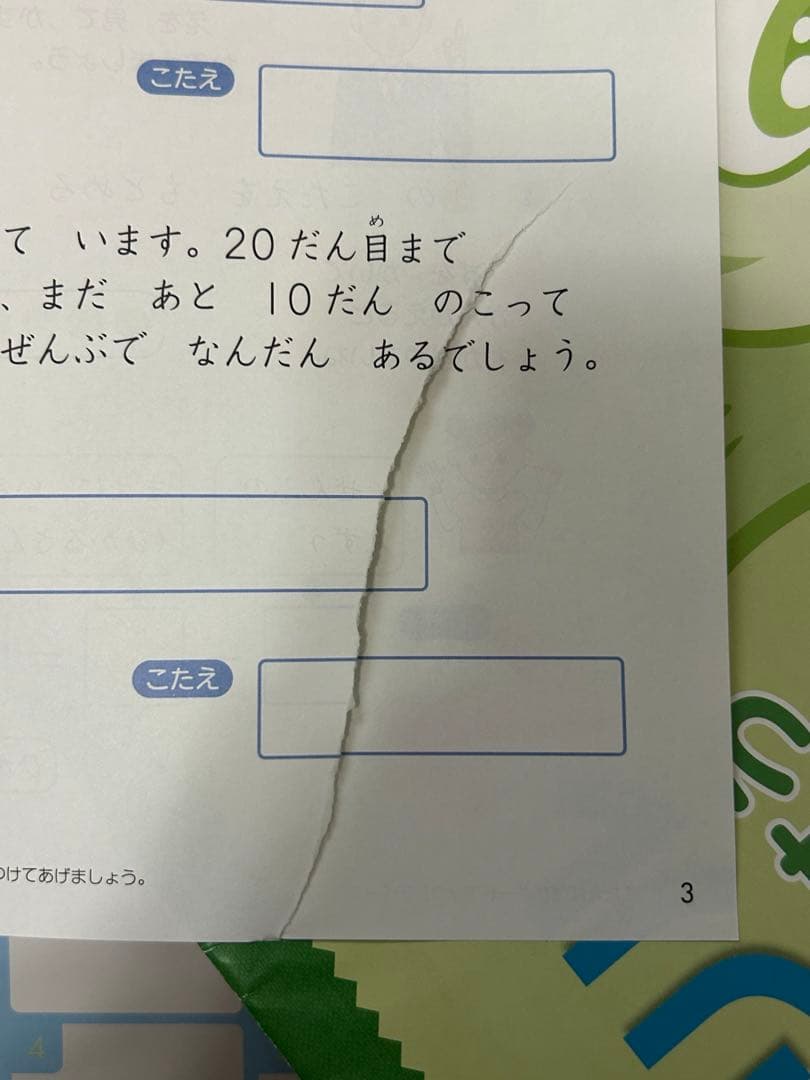 こたえ
て います。20だん目まで
め
、まだ あと 10だん のこって
ぜんぶで なんだん あるでしょう。
こたえ
つけてあげましょう。
3
4